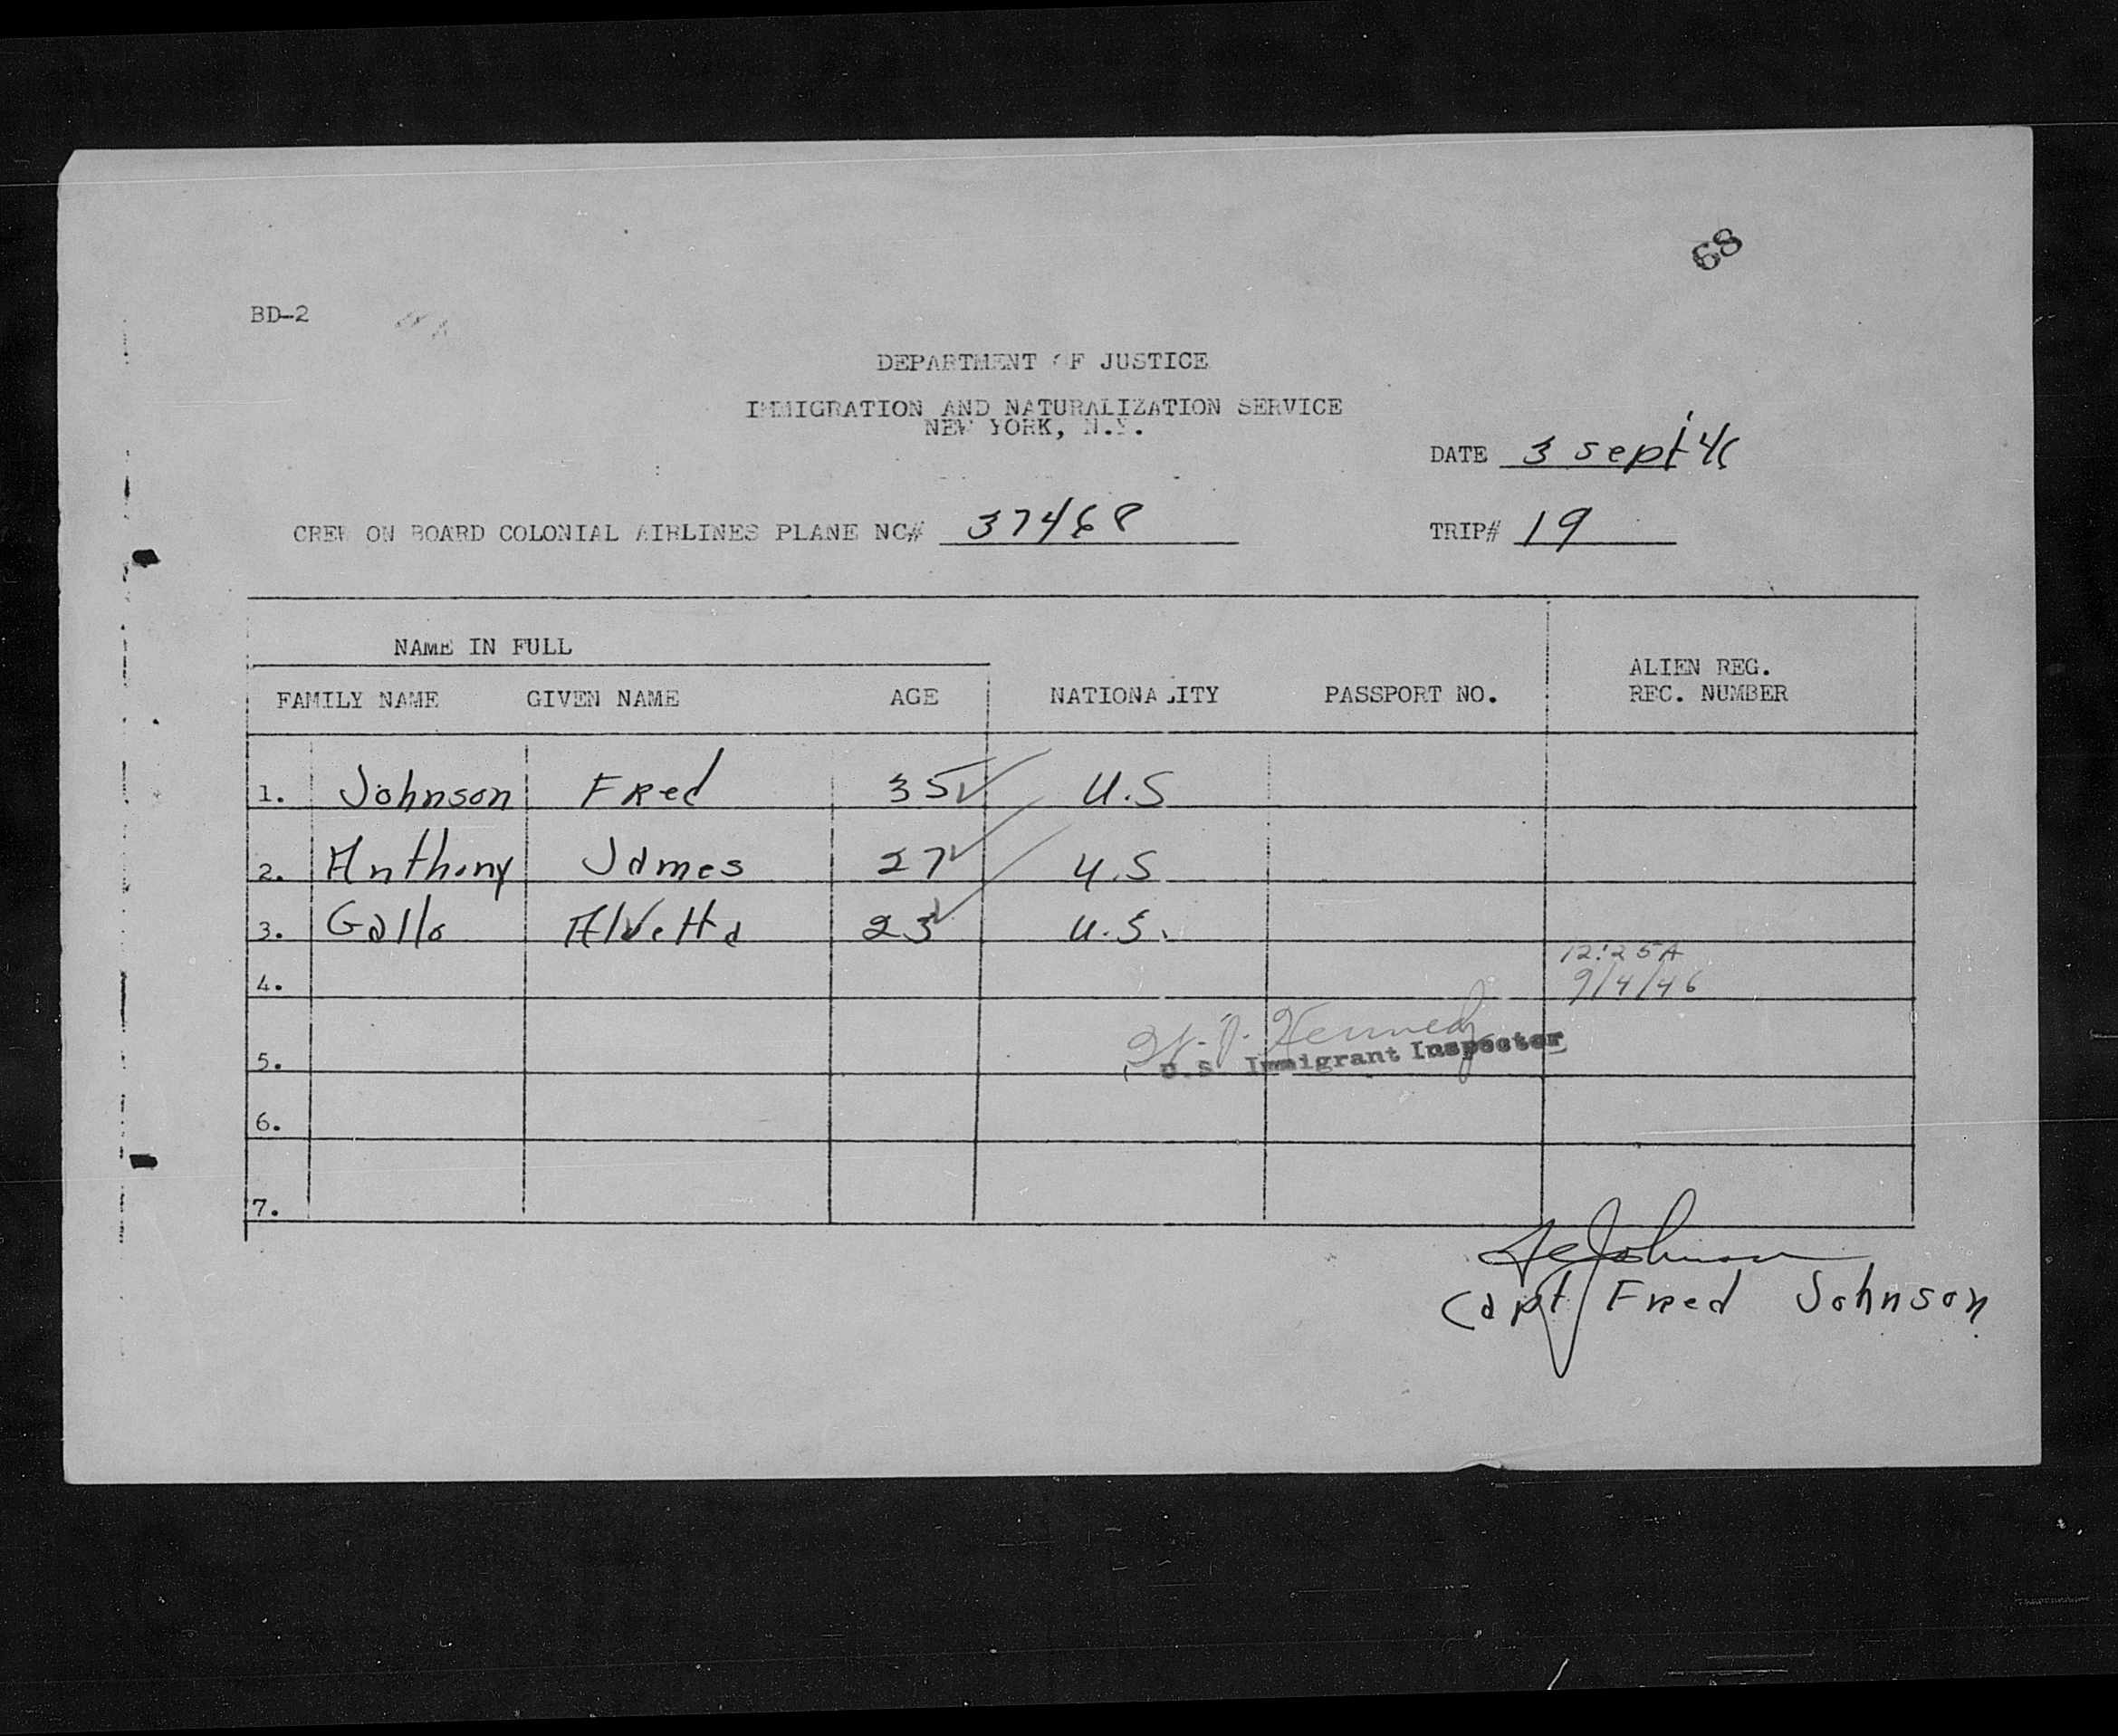 68
BD-2
DEPARTMENT OF JUSTICE
IMMIGRATION AND NATURALIZATION SERVICE
NEW YORK, N.Y.
DATE 3 sept '46
CREW ON BOARD COLONIAL AIRLINES PLANE NC# 37468
TRIP# 19
NAME IN FULL
FAMILY NAME GIVEN NAME AGE NATIONALITY PASSPORT NO. ALIEN REG. REC. NUMBER
1. Johnson Fred 35 U.S
2. Anthony James 27 U.S
3. Gallo Alvetta 23 U.S.
12:25A
4. 9/4/46
Kennedy
5. U.S. Immigrant Inspector
6.
7.
Johnson
Capt Fred Johnson